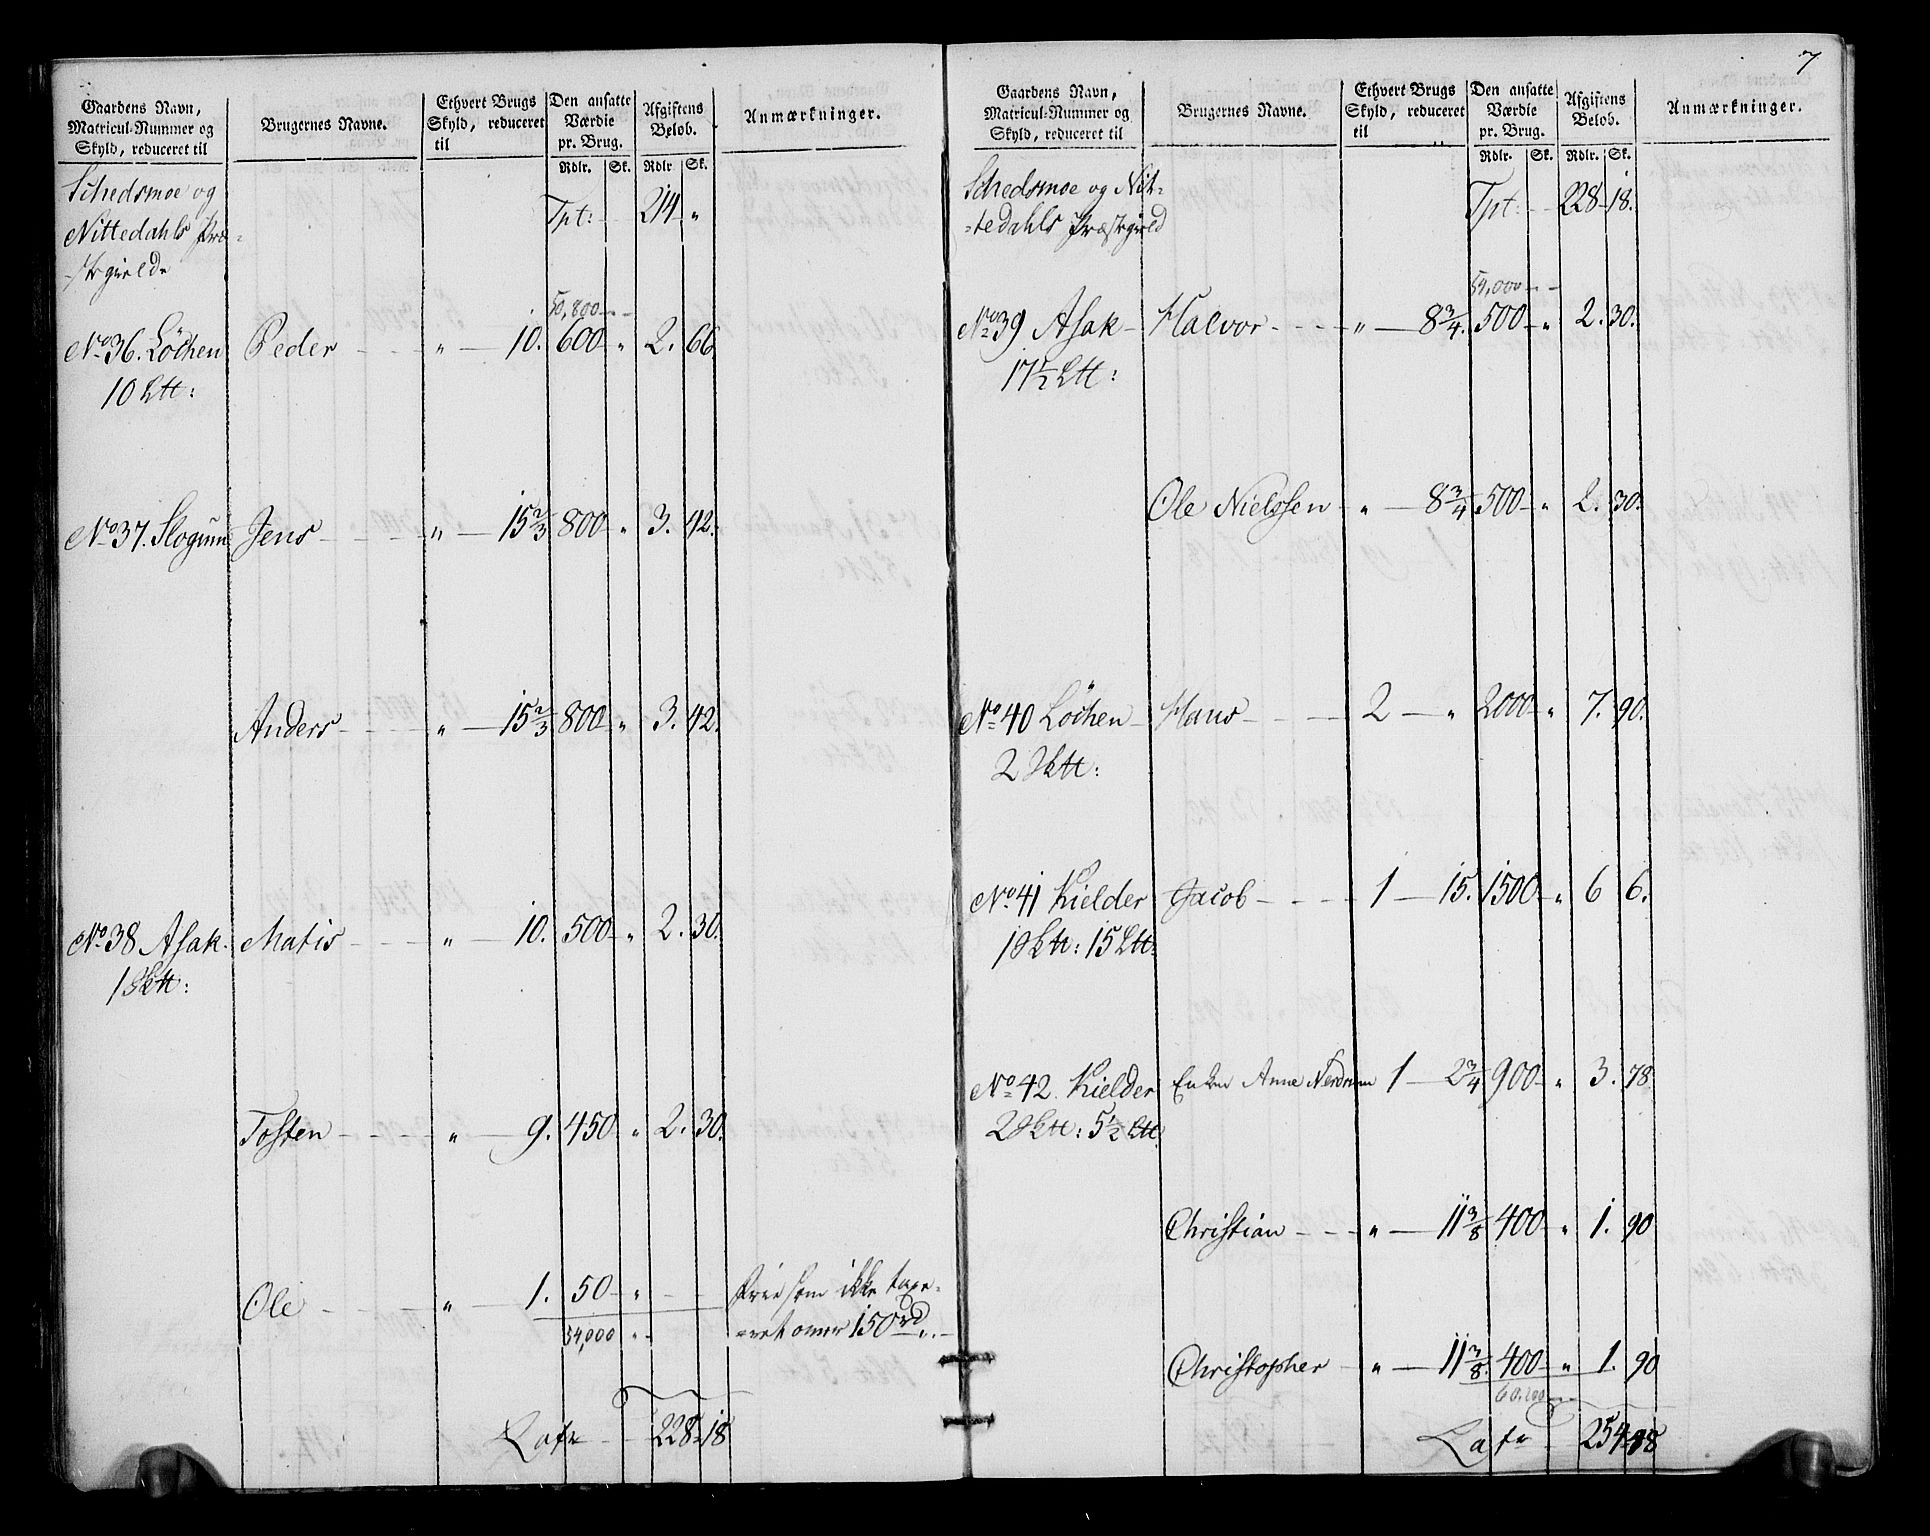 Gaardens Navn, Matricul-Nummer og Skyld, reduceret til | Brugernes Navne. | Ethvert Brugs Skyld, reduceret til | Den ansatte Værdie pr. Brug. Rdlr. Sk. | Afgiftens Beløb. Rdlr. Sk. | Anmærkninger.
Schedsmoe og
Nittedahls Præ-
-stegield
Tpt: 214 "
50,800
No 36. Löchen Peder " 10. 600 " 2. 66.
10 Ltt:
No 37. Slogum Jens " 15 2/3 800 " 3. 42.
Anders " 15 2/3 800 " 3. 42.
No 38 Asak Matis " 10. 500 " 2. 30.
1 Sktt:
Tosten " 9. 450 " 2. 30.
Ole " 1. 50 " Frie som ikke taxe-
54,000 " -ret over 150 rd
Late 228 18
7
Gaardens Navn, Matricul-Nummer og Skyld, reduceret til | Brugernes Navne. | Ethvert Brugs Skyld, reduceret til | Den ansatte Værdie pr. Brug. Rdlr. Sk. | Afgiftens Beløb. Rdlr. Sk. | Anmærkninger.
Schedsmoe og Nit-
-tedahls Præstegield
Tpt: 228 18.
54,000
No 39 Asak Halvor " 8 3/4. 500 " 2. 30.
17 1/2 Ltt:
Ole Nielssen " 8 3/4 500 " 2. 30.
No 40 Löchen Hans 2 " 2000 " 7. 90.
2 Sktt:
No 41 Kielder Jacob 1 15. 1500 " 6 6.
1 Sktt: 15 Ltt:
No 42. Kielder Enken Anne Nerdrum 1 2 3/4 900 " 3. 78
2 Sktt: 5 1/2 Ltt
Christian " 11 3/8 400 " 1. 90
Christopher " 11 3/8. 400 " 1. 90
60,200
Late 254 18